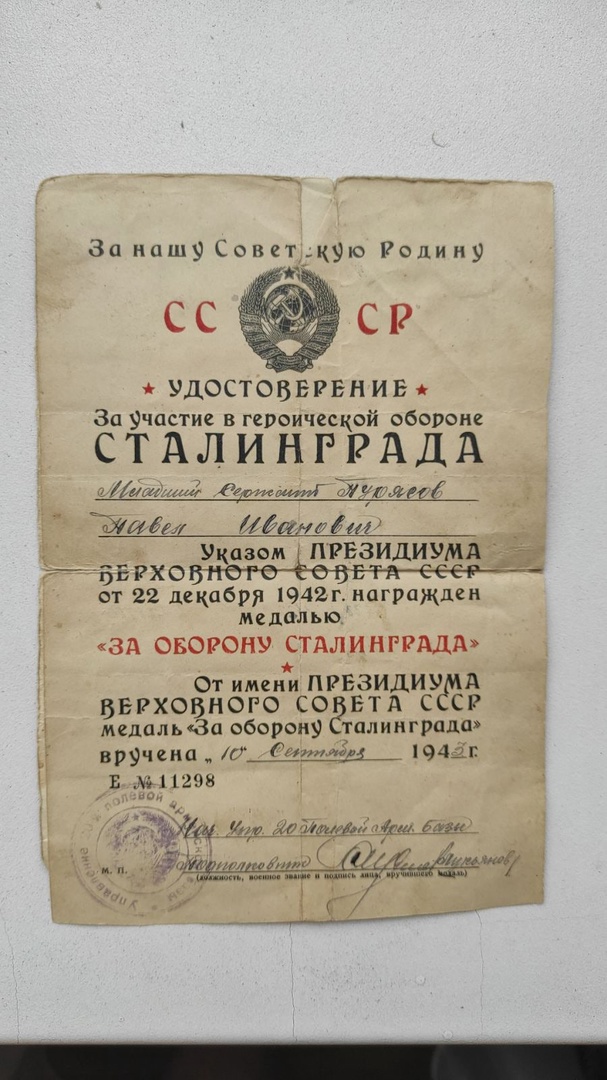 За нашу Советскую Родину
СССР
УДОСТОВЕРЕНИЕ
За участие в героической обороне
СТАЛИНГРАДА
Младший Сержант Пурясов
Павел Иванович
Указом ПРЕЗИДИУМА
ВЕРХОВНОГО СОВЕТА СССР
от 22 декабря 1942 г. награжден
медалью
«ЗА ОБОРОНУ СТАЛИНГРАДА»
От имени ПРЕЗИДИУМА
ВЕРХОВНОГО СОВЕТА СССР
медаль «За оборону Сталинграда»
вручена „10 Сентября 1943 г.
Е № 11298
Нач. Упр. 20 Полевой Арм. Базы
Подполковник
М. П.
(должность, военное звание и подпись лица, вручившего медаль)
Управление 20 полевой